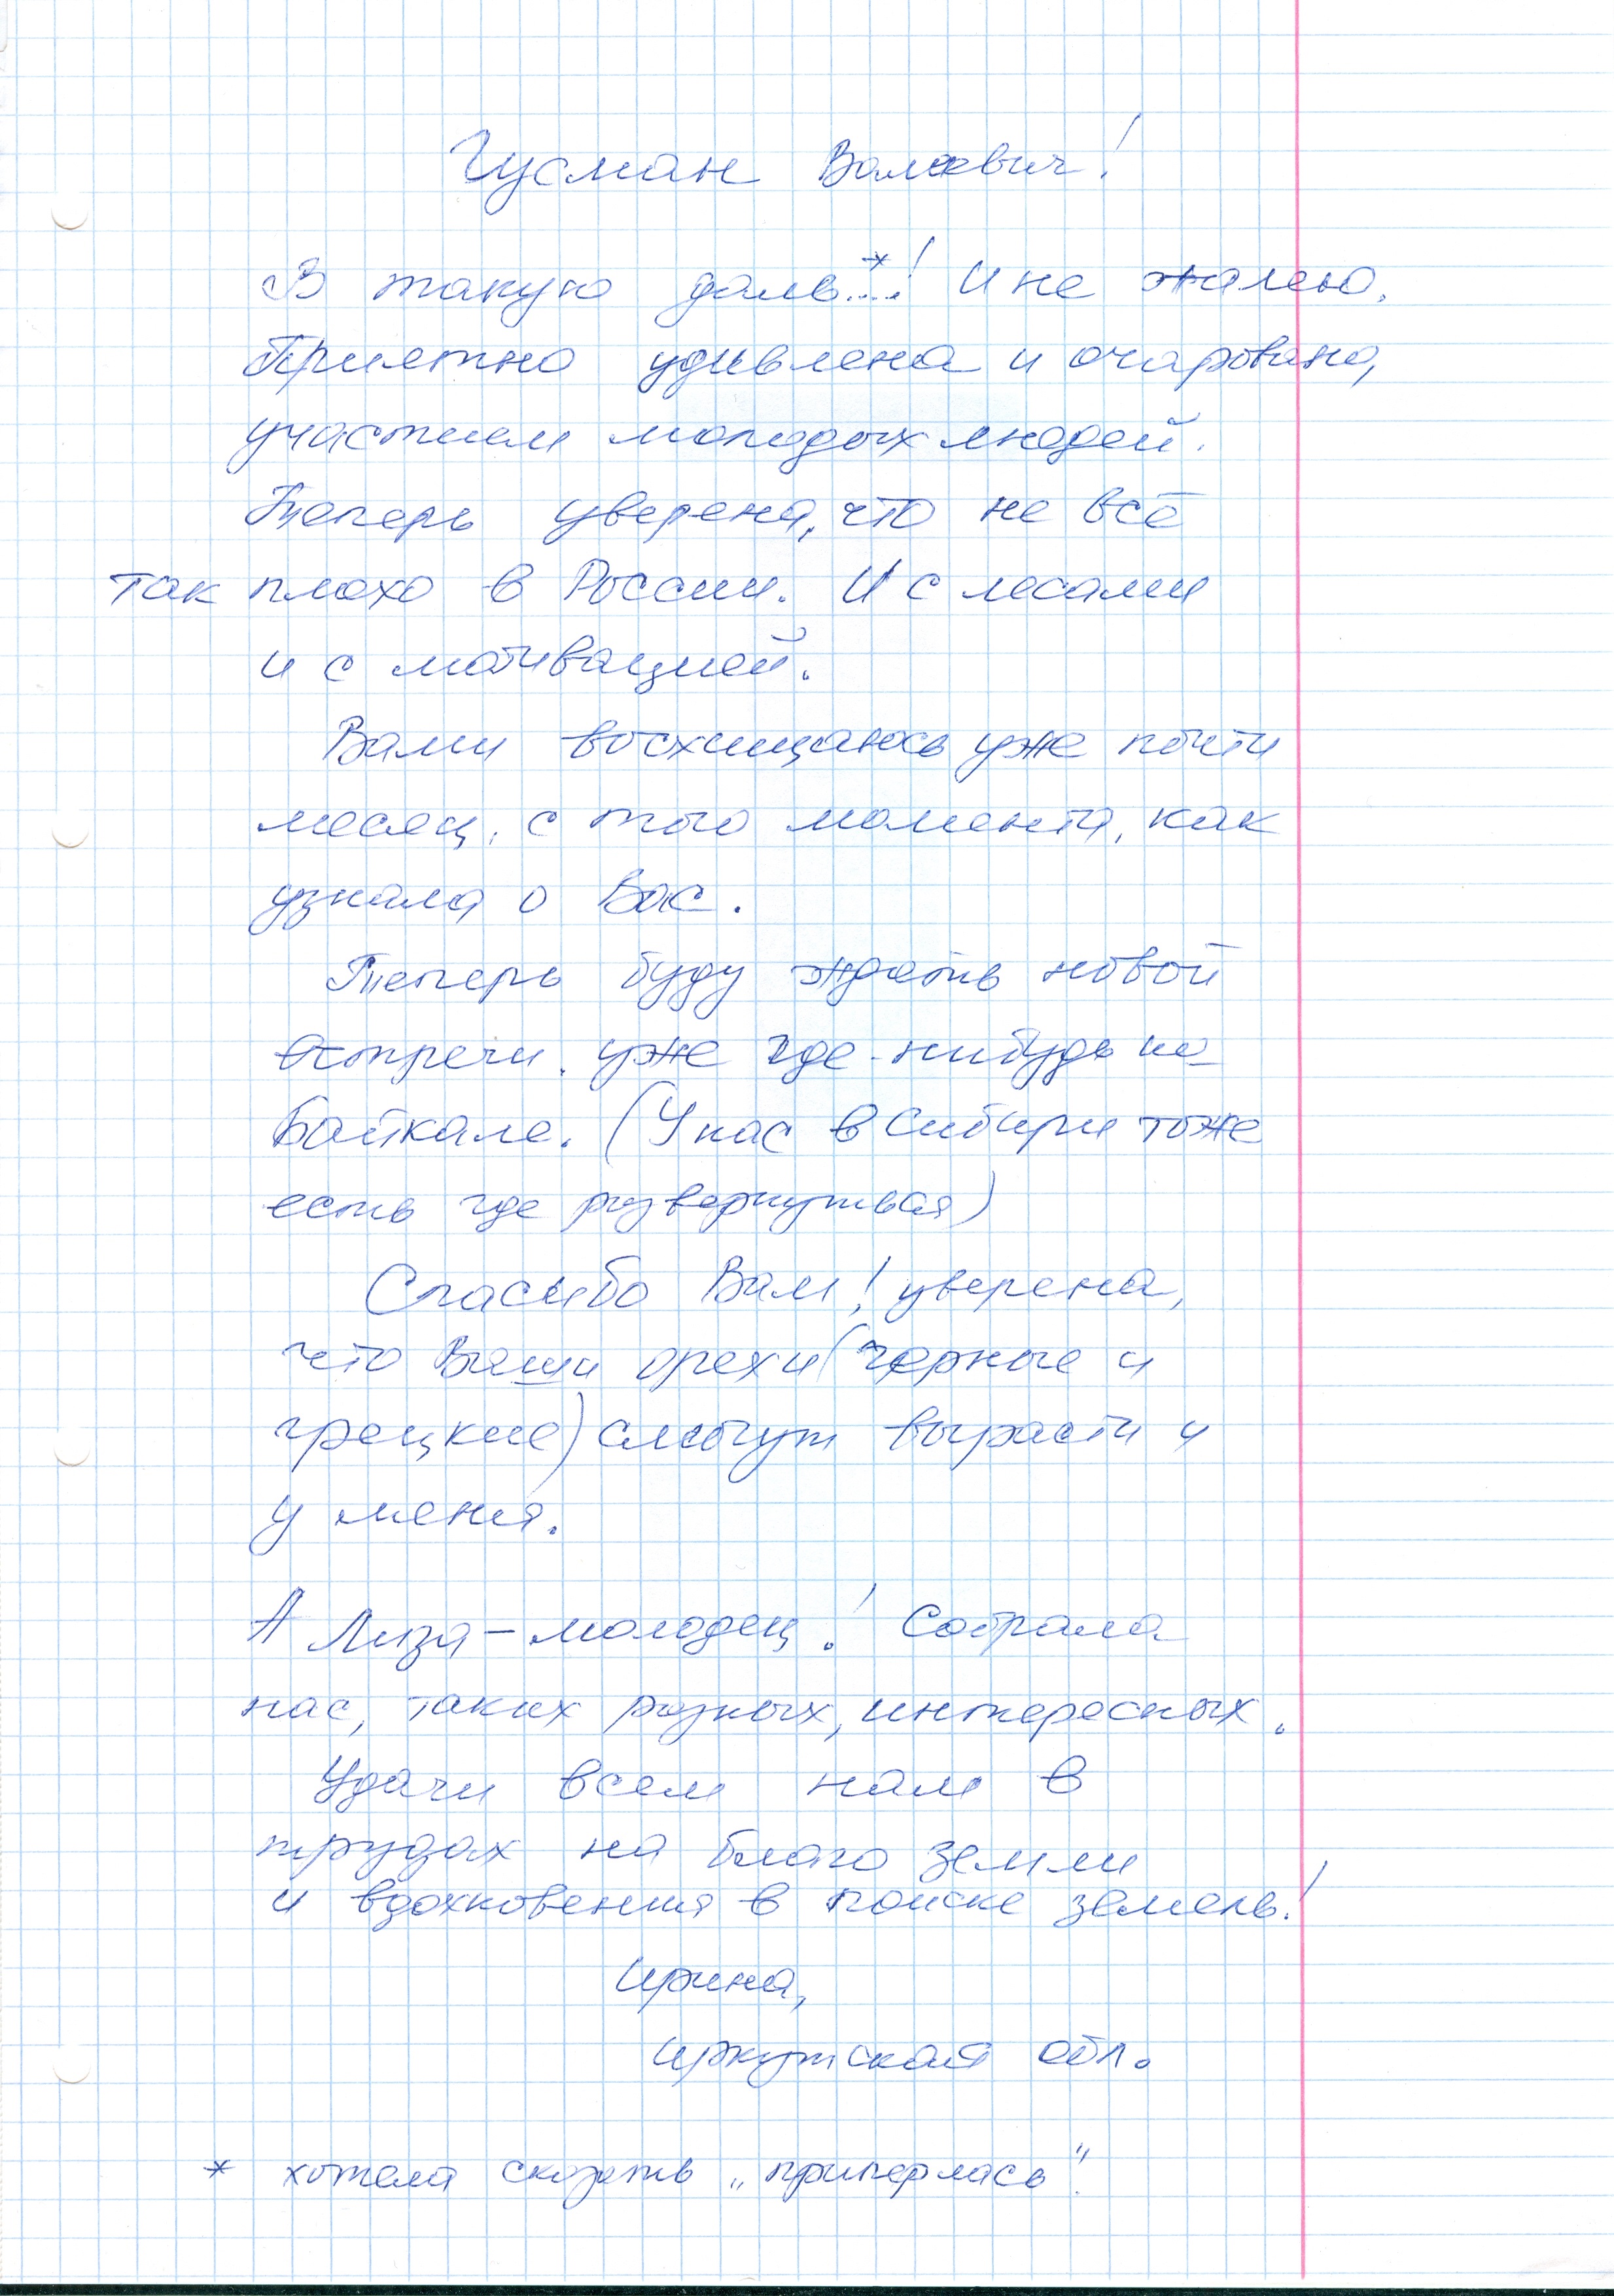 Гусман Валеевич!
В такую даль...*! И не жалею.
Приятно удивлена и очарована,
участием молодых людей.
Теперь уверена, что не всё
так плохо в России. И с лесами
и с мотивацией.
Вами восхищаюсь уже почти
месяц, с того момента, как
узнала о Вас.
Теперь буду ждать новой
встречи, уже где-нибудь на
Байкале. (У нас в Сибири тоже
есть где развернуться)
Спасибо Вам! уверена,
что Ваши орехи (черные и
грецкие) смогут вырасти и
у меня.
А Лиза - молодец! Собрала
нас, таких разных, интересных.
Удачи всем нам в
трудах на благо земли
и вдохновения в поиске земель!
Ирина,
Иркутская обл.
* хотела сказать „приперлась".